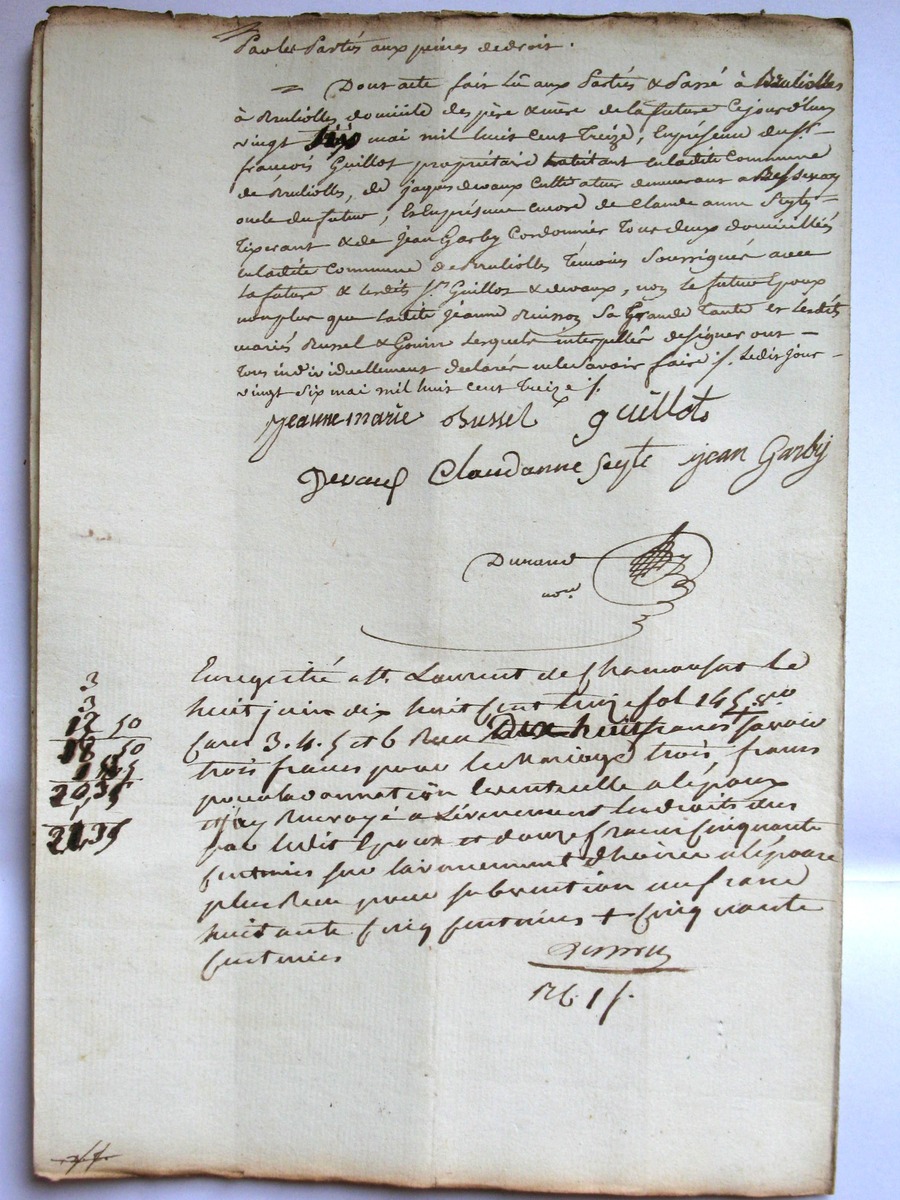 Par les Partis aux peines de droit.
= Dont acte fait lû aux Partiés & Passé à Brulioles
à Brulioles domicile des père & mère de la future Cejourd'huy
vingt six mai mil huit cent treize, En présence du Sr.
françois Guillot propriétaire habitant en la dite Commune
de Brulioles, de jaques devaux Cultivateur demeurant a Bessenay
oncle du futur, Et En présence encore de Claude anne Seyty
Tixerant & de Jean Garby Cordonnier Tous deux domiciliés
en la dite Commune de Brulioles Temoins Soussignés avec
la future & lesdits Sr. Guillot & devaux, non le futur Epoux
non plus que ladite Jeanne Buisson Sa Grande Tante et lesdits
mariés Bussel & Gouin lesquels interpellés de signer ont
Tous individuellement déclarés ne le Savoir faire /. Ledit Jour
vingt Six mai mil huit cent treize /.
jeanne marie Bussel guillot
Devaux Claudanne Seyte jean Garby
Durand
nore
3
3
12 50
18 50
1 85
20 35
22,35
Enregistré a St. Laurent de Chamousset le
huit juin dix huit cent treize fol 145 vo
Cases 3. 4. 5 et 6 Reçu Dix huit francs Savoir
trois francs pour le Mariage trois francs
pour la donnation Eventuelle a l'époux
j'ay Renvoyé a L'évenement les droits dus
par ledit Epoux et douze francs Cinquante
Centimes sur l'avancement d'hoirie a l'épouse
plus Reçu pour subvention un franc
huitante Cinq Centimes + Cinquante
Centimes